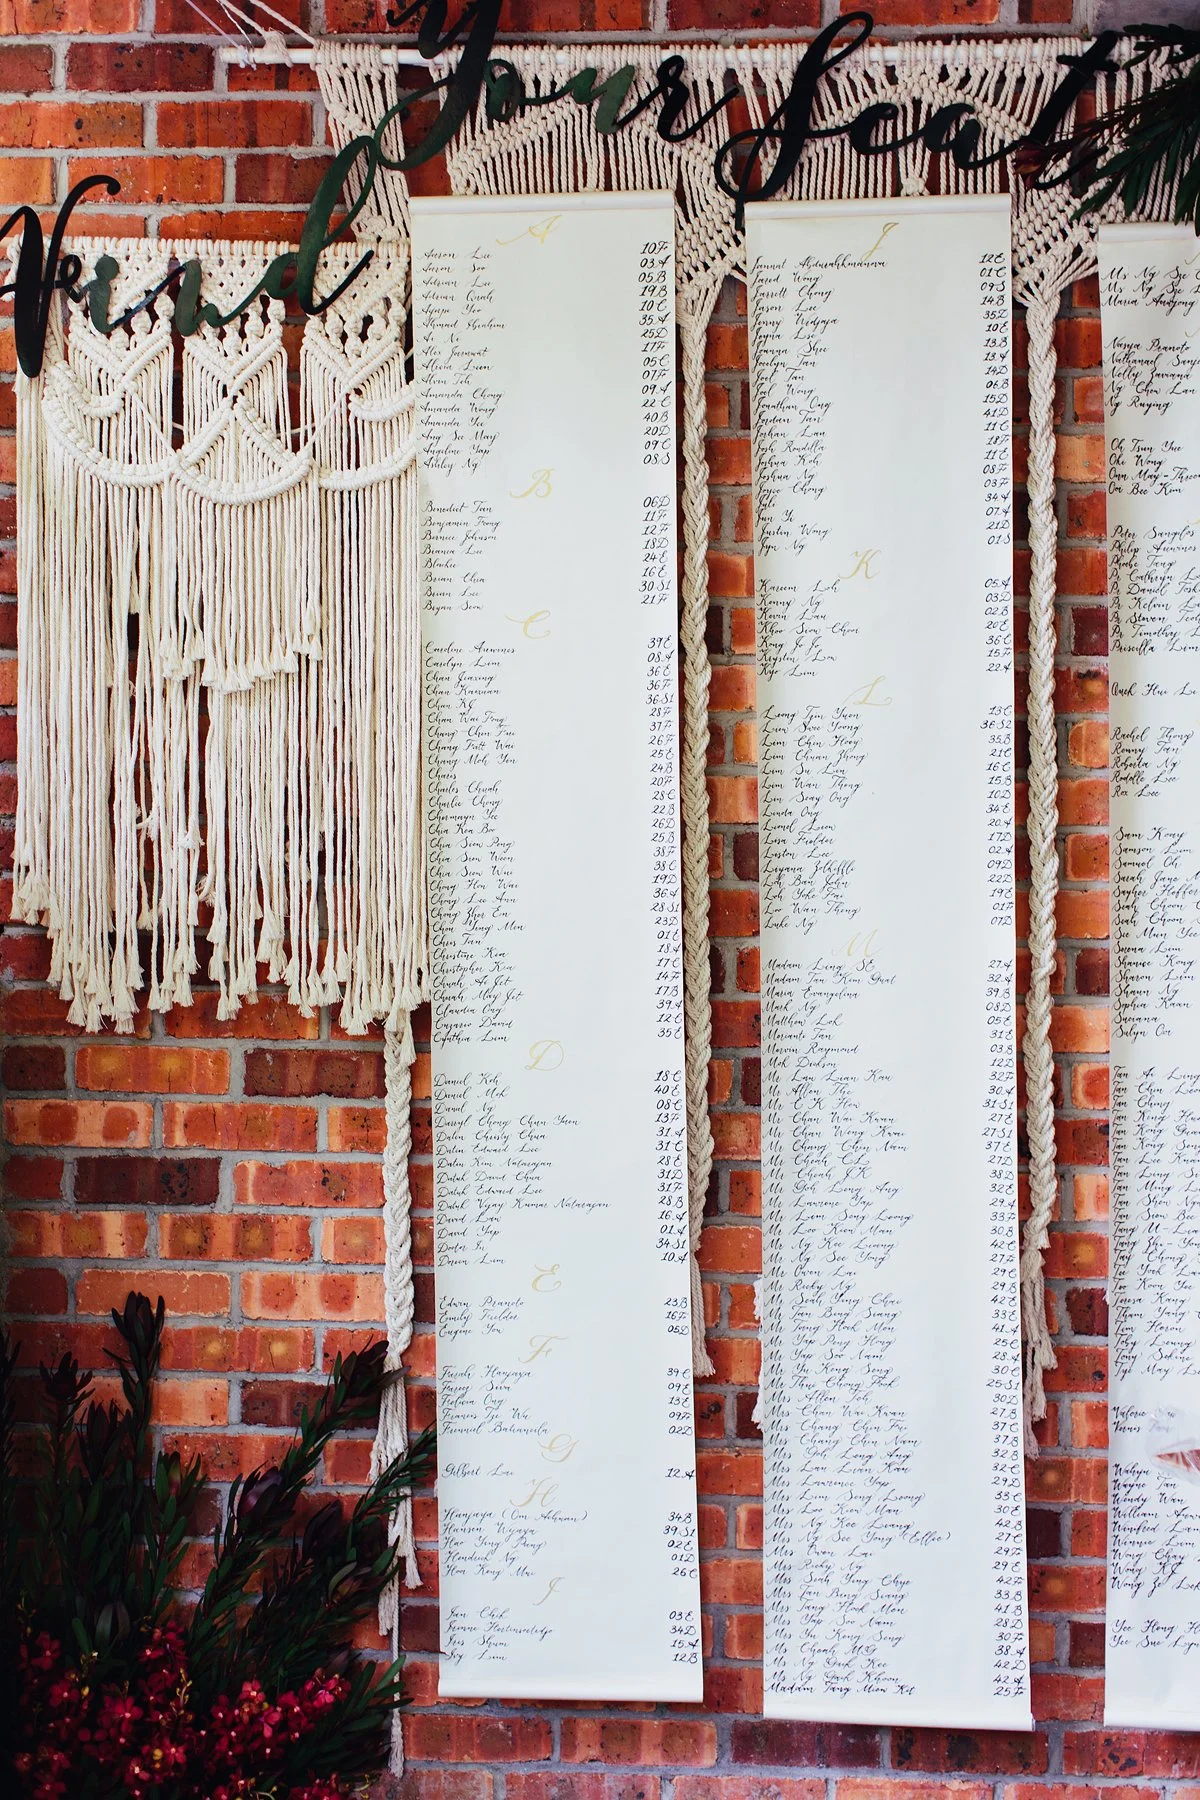 Find Your Seat
A
Aaron Lee 10F
Aaron Soo 03A
Adrian Lee 05B
Adrian Quah 19B
10C
Ahmad Ibrahim 35A
Ai Ni 25D
Alex 17F
Alicia Lien 05C
Alvin Teh 07F
Amanda Chong 09A
Amanda Wong 22C
Amanda Yee 40B
Ang See May 20D
Angeline Yap 09C
Ashley Ng 08S
B
Benedict Tan 06D
Benjamin Fong 11F
Bernice Johnson 12F
Bianca Lee 18D
Blackie 24E
Brian Chia 16E
Brian Lee 30S1
Bryan Siow 21F
C
Caroline Aruwines 39E
Carolyn Lim 08A
Chan Jiaxing 36E
Chan Kaixuan 36F
Chan KJ 36S1
Chan Wai Fong 28F
Chang Chin Fui 37F
Chang Fott Wai 26F
Chang Moh Yin 25E
Charis 24B
Charles Chuah 20F
Charlie Chong 28C
Charmayn Yee 22B
Chia Kea Boo 26D
Chia Siew Peng 25B
Chia Siew Wien 38F
Chia Siew Wui 38C
Chong Hon Wai 19D
Chong Lee Ann 36A
Chong Zher Ein 28S1
Chou Ying Min 23D
Chris Tan 01E
Christine Kea 18A
Christopher Kea 17C
Chuah Ai Jet 14F
Chuah May Jet 17B
Claudia Ong 39A
Curzario David 12C
Cynthia Lim 35E
D
Daniel Koh 18C
Daniel Moh 40E
Daniel Ng 08C
Darryl Chong Chan Yuen 13F
Datin Chrisly Chua 31A
Datin Edward Lee 31C
Datin Kim Natarajan 28E
Datuk David Chua 31D
Datuk Edward Lee 31F
Datuk Vijay Kumar Natarajan 28B
David Lau 16A
David Yap 01A
34S1
Doreen Lim 10A
E
Edwin Pranoto 23B
Emily Fielder 16F
Eugene You 05D
F
Farah Hanjaya 39C
Farey Siva 09E
Felicia Ong 13E
Francis Tje Wu 09F
02D
G
Gilbert Lai 12A
H
34B
Hansen Wijaya 39S1
Hao Jing Pheng 02E
Hendrick Ng 01D
Hoa Keng Mui 26C
I
Ian Chik 03E
34D
Iris Shum 15A
Ivy Lim 12B
J
Jannat Abdurahkmanova 12E
Jared Wong 01C
Jarrett Chong 09S
Jason Lee 14B
Jenny Widjaja 35D
10E
Joanna Shee 13B
Jocelyn Tan 13A
Joel Tan 14D
Joel Wong 06B
Jonathan Ong 15D
Jordan Tan 41D
Joshan Lau 11C
Josh Rondilla 18F
Joshua Koh 11E
Joshua Ng 08F
Joyce Chong 03F
Juli 34A
Jun Yi 07A
Justin Wong 21D
Jyn Ng 01S
K
Kareem Loh 05A
Kenny Ng 03D
Kevin Lau 02B
Khoo Siew Choon 20E
Kong Jo Jo 36C
Krystin Low 15F
Kyo Lim 22A
L
Leong Tjin Yuon 13C
Liew Swee Yoong 36S2
Lim Chin Hooy 35B
Lim Chuan Zhong 21C
Lim Su Lin 16C
Lim Wan Thong 15B
Lin Siay Ong 10D
Linda Ong 34E
Lionel Liew 20A
Lisa Fielder 17D
Liston Lee 02A
Liyana Zolkeffli 09D
Loh Ban John 22D
Loh Yoke Fai 19E
Loo Wan Theng 01F
Luke Ng 07D
M
Madam Ling SE 27A
Madam Tan Kim Guat 32A
Maria Evangelina 39B
Mark Ng 08D
Matthew Loh 05E
Merianti Tan 31E
Mervin Raymond 03B
Moh Dickson 12D
Mr Lau Lian Kau 32F
Mr Allen Tho 30A
Mr C K How 31S1
Mr Chan Wai Kwan 27E
Mr Chan Wong Kwai 27S1
Mr Chang Chin Nam 37E
Mr Cheah CL 27D
Mr Cheah JK 38D
Mr Goh Leng Ang 32E
Mr Lawrence Yap 29A
Mr Lim Song Loong 33F
Mr Loo Kien Man 30B
Mr Ng Kee Liang 42C
Mr Ng See Yong 27F
Mr Owen Lai 29C
Mr Ricky Ng 29B
Mr Seah Ying Chye 42E
Mr Tan Beng Siang 33E
Mr Tang Hock Mon 41A
Mr Yap Peng Hong 25C
Mr Yap Soo Nam 28A
Mr Yu Keng Seng 30C
Mr Thiu Chong Fook 25S1
Mrs Allen Toh 30D
Mrs Chan Wai Kwan 27B
Mrs Chang Chin Fui 37C
Mrs Chang Chin Nam 37B
Mrs Goh Leng Ang 32B
Mrs Lau Lian Kau 32C
Mrs Lawrence Yap 29D
Mrs Lim Song Loong 33C
Mrs Loo Kien Man 30E
Mrs Ng Kee Liang 42B
Mrs Ng See Yong (Effie) 27C
Mrs Owen Lai 29F
Mrs Ricky Ng 29E
Mrs Seah Ying Chye 42F
Mrs Tan Beng Siang 33B
Mrs Tang Hock Mon 41B
Mrs Yap Soo Nam 28D
Mrs Yu Keng Seng 30F
Ms Cheah MG 38A
Ms Ng Gaik Kee 42D
Ms Ng Gaik Khoon 42A
Madam Tang Miew Kit 25F
Ms Ng Sze
Ms Ng Sze
Maria Andyong
Nasya Pranoto
Nathanael
Nelly Zaviana
Ng Chow Lan
Ng Ruying
Oh Tsun Yue
Oki Wong
Onn May-Thren
Ooi Bee Kim
Peter Sangilos
Philip Aruwines
Phoebe Tang
Pr Cathryn
Pr Daniel
Pr Kelvin
Pr Steven
Pr Timothy
Priscilla Lim
Quek Hui
Rachel Thong
Renny Tan
Roberta Ng
Rodelle Lee
Rox Lee
Sam Koay
Samson Lim
Samuel Oh
Sarah Jane
Saydee Heffer
Seah Choon
Seah Choon
See Mun Yee
Serena Lim
Shanice Kong
Sharon Lim
Shaun Ng
Sophia Kuan
Suriana
Sulyn Ooi
Tan Ai Ling
Tan Chin
Tan Ching
Tan Keng
Tan Kong
Tan Kong
Tan Lee
Tan Ling
Tan Ming
Tan Show
Tan Siew
Tang U-Li
Tang Zhi-You
Tay Chong
Tee Yoek
Teo Koon
Teresa Kang
Tham Yang
Tim Heron
Toby Leong
Tony Sekine
Tye May
Valerie
Venus
Wahyu
Wayne Tan
Wendy Wan
William
Winifred
Winnie Lim
Wong Chay
Wong KJ
Wong Ze
Yee Hong
Yee Sue